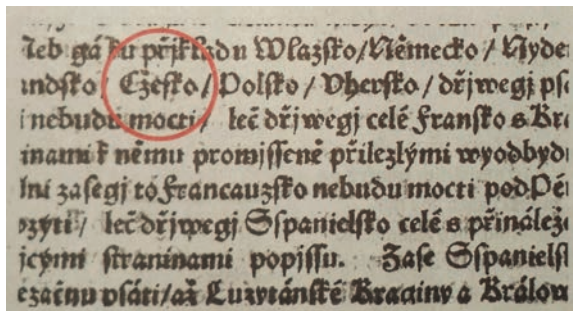 gá ku přjkladu Wlazſko/Německo/Nyder
indſko/Cžeſko/Polſko/Vherſko/dřjwegj pſ
i nebudu mocti/ leč dřjwegj celé Franſko s Kra
inami k němu promjſſeně přilezlými wyodbydi
lnj zaſegj tó Francauzſko nebudu mocti pod Pé
ozyti/ leč dřjwegj Sſpanielſko celé s přináleže
jcými ſtraninami popjſſu. Zaſe Sſpanielſk
ezačnu vſáti/až Luzytánſké Kraginy a Králow